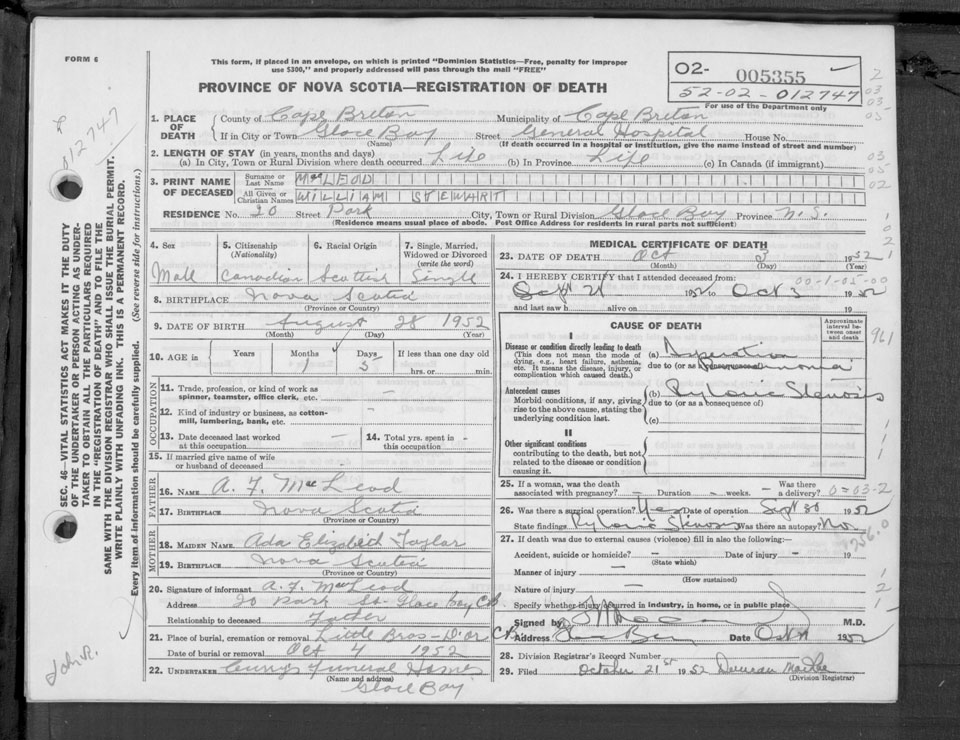 FORM 6
This form, if placed in an envelope, on which is printed "Dominion Statistics—Free, penalty for improper
use $300," and properly addressed will pass through the mail "FREE"
PROVINCE OF NOVA SCOTIA—REGISTRATION OF DEATH
02- 005355
52-02-012747
For use of the Department only
1. PLACE OF DEATH
County of Cape Breton Municipality of Cape Breton
If in City or Town Glace Bay Street General Hospital House No.
(Name) (If death occurred in a hospital or institution, give the name instead of street and number)
2. LENGTH OF STAY (in years, months and days)
(a) In City, Town or Rural Division where death occurred Life (b) In Province Life (c) In Canada (if immigrant)
3. PRINT NAME OF DECEASED
Surname or Last Name MacLEOD
All Given or Christian Names WILLIAM STEWART
RESIDENCE No. 20 Street Park City, Town or Rural Division Glace Bay Province N.S.
(Residence means usual place of abode. Post Office Address for residents in rural parts not sufficient)
4. Sex 5. Citizenship (Nationality) 6. Racial Origin 7. Single, Married, Widowed or Divorced (write the word)
Male Canadian Scottish Single
8. BIRTHPLACE Nova Scotia
(Province or Country)
9. DATE OF BIRTH August 28 1952
(Month) (Day) (Year)
10. AGE in Years Months Days If less than one day old
1 5 hrs. or min.
OCCUPATION
11. Trade, profession, or kind of work as
spinner, teamster, office clerk, etc. —
12. Kind of industry or business, as cotton-
mill, lumbering, bank, etc. —
13. Date deceased last worked at this occupation — 14. Total yrs. spent in this occupation -
15. If married give name of wife
or husband of deceased
FATHER
16. NAME A. F. MacLeod
17. BIRTHPLACE Nova Scotia
(Province or Country)
MOTHER
18. MAIDEN NAME Ada Elizabeth Taylor
19. BIRTHPLACE Nova Scotia
(Province or Country)
20. Signature of informant A. F. MacLeod
Address 20 Park St- Glace Bay C B
Relationship to deceased Father
21. Place of burial, cremation or removal Little Bras-D'or C.B.
Date of burial or removal Oct 4 1952
22. UNDERTAKER Curry's Funeral Home
(Name and address)
Glace Bay
MEDICAL CERTIFICATE OF DEATH
23. DATE OF DEATH Oct 3 1952
(Month) (Day) (Year)
24. I HEREBY CERTIFY that I attended deceased from: 00-1-05-00
Sept 21 1952 to Oct 3 1952
and last saw h alive on 19
CAUSE OF DEATH
Approximate interval between onset and death
I
Disease or condition directly leading to death
(This does not mean the mode of
dying, e.g., heart failure, asthenia,
etc. It means the disease, injury, or
complication which caused death.)
(a) Aspiration
due to (or as a consequence of) Pneumonia
Antecedent causes
Morbid conditions, if any, giving
rise to the above cause, stating the
underlying condition last.
(b) Pyloric Stenosis
due to (or as a consequence of)
(c)
II
Other significant conditions
contributing to the death, but not
related to the disease or condition
causing it.
25. If a woman, was the death
associated with pregnancy? — Duration — weeks. — Was there a delivery? 0=03-2
26. Was there a surgical operation? Yes Date of operation Sept 30 1952
State findings Pyloric Stenosis Was there an autopsy? No.
27. If death was due to external causes (violence) fill in also the following:—
Accident, suicide or homicide? — Date of injury — 19
(State which)
Manner of injury —
(How sustained)
Nature of injury —
Specify whether injury occurred in industry, in home, or in public place
Signed by M.D.
Address Glace Bay Date Oct 1952
28. Division Registrar's Record Number
29. Filed October 21st 1952 Duncan
(Division Registrar)
SEC. 46—VITAL STATISTICS ACT MAKES IT THE DUTY
OF THE UNDERTAKER OR PERSON ACTING AS UNDER-
TAKER TO OBTAIN ALL THE PARTICULARS REQUIRED
IN THE "REGISTRATION OF DEATH" AND TO FILE THE
SAME WITH THE DIVISION REGISTRAR WHO SHALL ISSUE THE BURIAL PERMIT.
WRITE PLAINLY WITH UNFADING INK. THIS IS A PERMANENT RECORD.
Every item of information should be carefully supplied. (See reverse side for instructions.)
012747
John R.
961
756.0